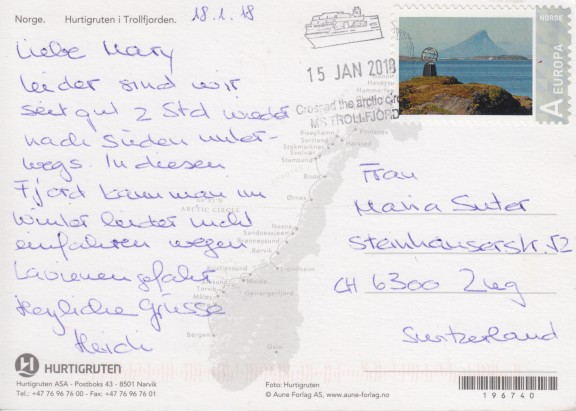 Norge. Hurtigruten i Trollfjorden. 18.1.18
Liebe Mary
leider sind wir
seit gut 2 Std wieder
nach Süden unter-
wegs. In diesen
Fjord kann man im
Winter leider nicht
einfahren wegen
Lavienengefahr
Herzliche Grüsse
Heidi
15 JAN 2018
Crossed the arctic circle
MS TROLLFJORD
NORGE
A EUROPA
Frau
Maria Suter
Steinhauserstr. 52
CH 6300 Zug
Switzerland
ARCTIC CIRCLE
Hammerfest
Risøyhamn
Sortland
Stokmarknes
Svolvær
Stamsund
Harstad
Finnsnes
Bodø
Ørnes
Nesna
Sandnessjøen
Brønnøysund
Rørvik
Trondheim
Kristiansund
Molde
Ålesund
Geirangerfjord
Torvik
Måløy
Florø
Bergen
Oslo
HURTIGRUTEN
Hurtigruten ASA - Postboks 43 - 8501 Narvik
Tel.: +47 76 96 76 00 - Fax: +47 76 96 76 01
Foto: Hurtigruten
© Aune Forlag AS, www.aune-forlag.no
196740